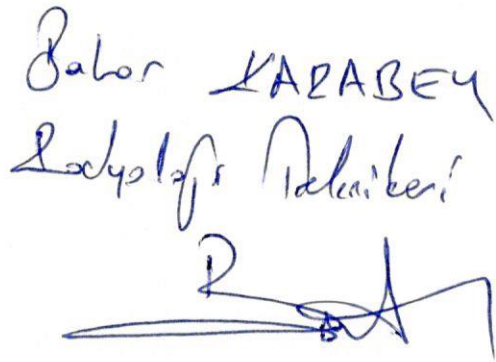 Bahar KARABEY
Radyoloji Teknikeri